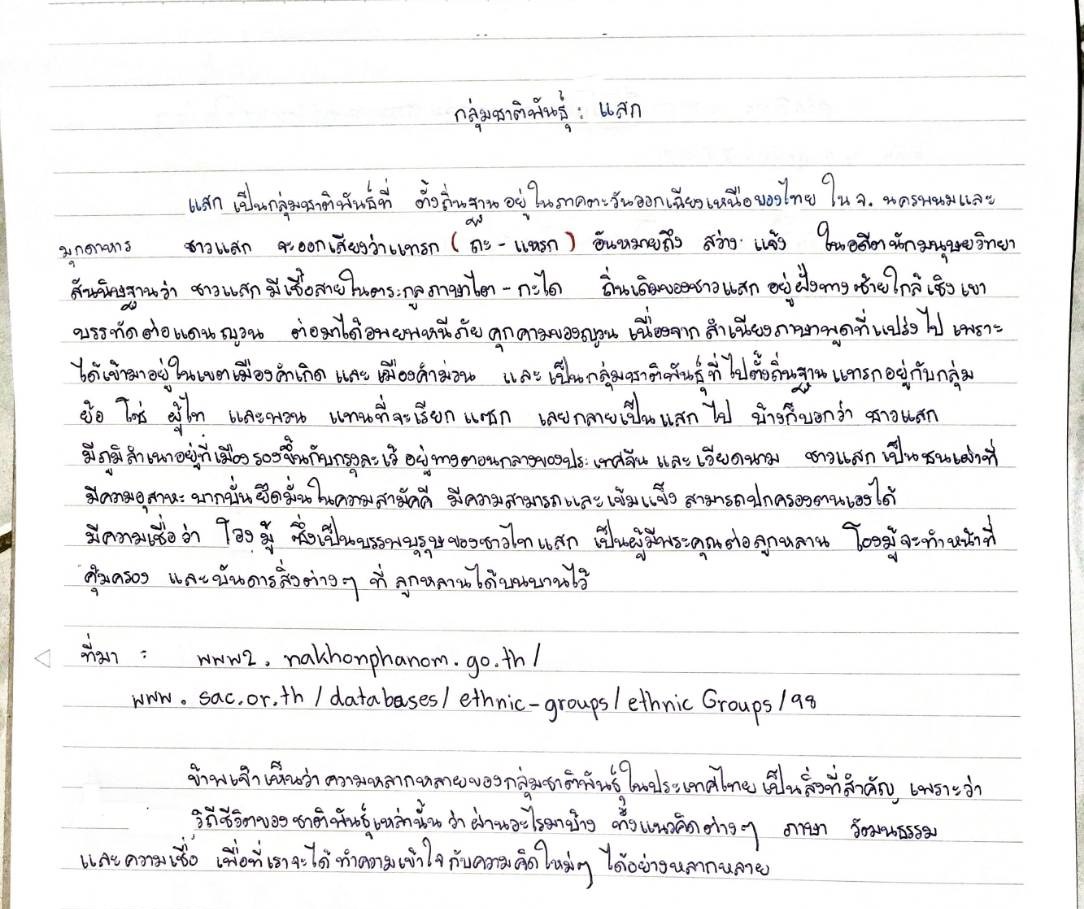 กลุ่มชาติพันธุ์ : แสก
แสก เป็นกลุ่มชาติพันธ์ที่ ตั้งถิ่นฐาน อยู่ในภาคตะวันออกเฉียงเหนือของไทย ใน จ. นครพนมและ
มุกดาหาร ชาวแสก จะออกเสียงว่าแทรก ( ถะ - แหรก ) อันหมายถึง สว่าง แจ้ง ในอดีตนักมนุษยวิทยา
สันนิษฐานว่า ชาวแสก มีเชื้อสายในตระกูลภาษาไต - กะได ถิ่นเดิมของชาวแสก อยู่ฝั่งทางซ้ายใกล้เชิงเขา
บรรทัดต่อแดนญวน ต่อมาได้อพยพหนีภัย คุกคามของญวน เนื่องจาก สำเนียงภาษาพูดที่แปร่งไป เพราะ
ได้เข้ามาอยู่ในเขตเมืองคำเกิด และ เมืองคำม่วน และ เป็นกลุ่มชาติพันธุ์ที่ไปตั้งถิ่นฐานแทรกอยู่กับกลุ่ม
ย้อ โซ่ ผู้ไท และพวน แทนที่จะเรียก แซก เลยกลายเป็นแสก ไป บ้างก็บอกว่า ชาวแสก
มีภูมิลำเนาอยู่ที่เมืองรองขึ้นกับกรุงละเว้ อยู่ทางตอนกลางของประเทศจีน และ เวียดนาม ชาวแสก เป็นชนเผ่าที่
มีความอุสาหะ บากบั่น ยึดมั่นในความสามัคคี มีความสามารถและเข้มแข็ง สามารถปกครองตนเองได้
มีความเชื่อว่า โองมู้ ซึ่งเป็นบรรพบุรุษของชาวไทแสก เป็นผู้มีพระคุณต่อลูกหลาน โองมู้จะทำหน้าที่
คุ้มครอง และบันดารสิ่งต่างๆ ที่ ลูกหลานได้บนบานไว้
ที่มา : www2. nakhonphanom.go.th/
www. sac.or.th / databases/ ethnic-groups/ ethnic Groups /98
ข้าพเจ้าเห็นว่า ความหลากหลายของกลุ่มชาติพันธุ์ในประเทศไทย เป็นสิ่งที่สำคัญ เพราะว่า
วิถีชีวิตของชาติพันธุ์เหล่านั้น ว่า ผ่านอะไรมาบ้าง ทั้งแนวคิดต่างๆ ภาษา วัฒนธรรม
และความเชื่อ เพื่อที่เราจะได้ทำความเข้าใจ กับความคิดใหม่ๆ ได้อย่างหลากหลาย